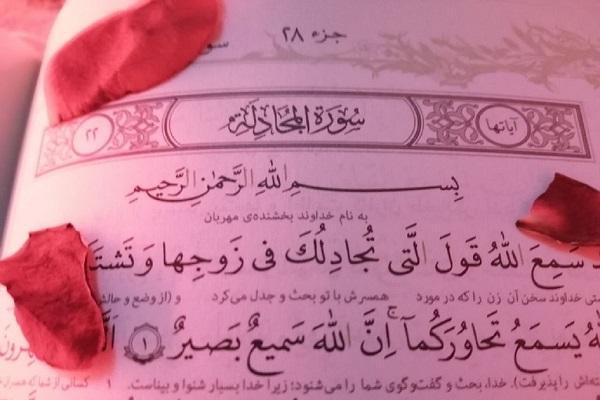 جزء ۲۸
سو
آیاتها سُورَةُ المُجَادِلَةِ ۲۲
بِسْمِ اللهِ الرَّحمٰنِ الرَّحیمِ
به نام خداوند بخشنده‌ی مهربان
سَمِعَ اللهُ قَولَ الَّتی تُجادِلُكَ فی زَوجِها وَ تَشتَ
خداوند سخن آن زن را که در مورد همسرش با تو بحث و جدل می‌کرد و (از وضع و حالش
یَسمَعُ تَحاوُرَكُمآ ۚ اِنَّ اللهَ سَمیعٌ بَصیرٌ ۱
را پذیرفت). خدا، بحث و گفت‌وگوی شما را می‌شنود؛ زیرا خدا بسیار شنوا و بیناست. ۱ کسانی از شما که همسران